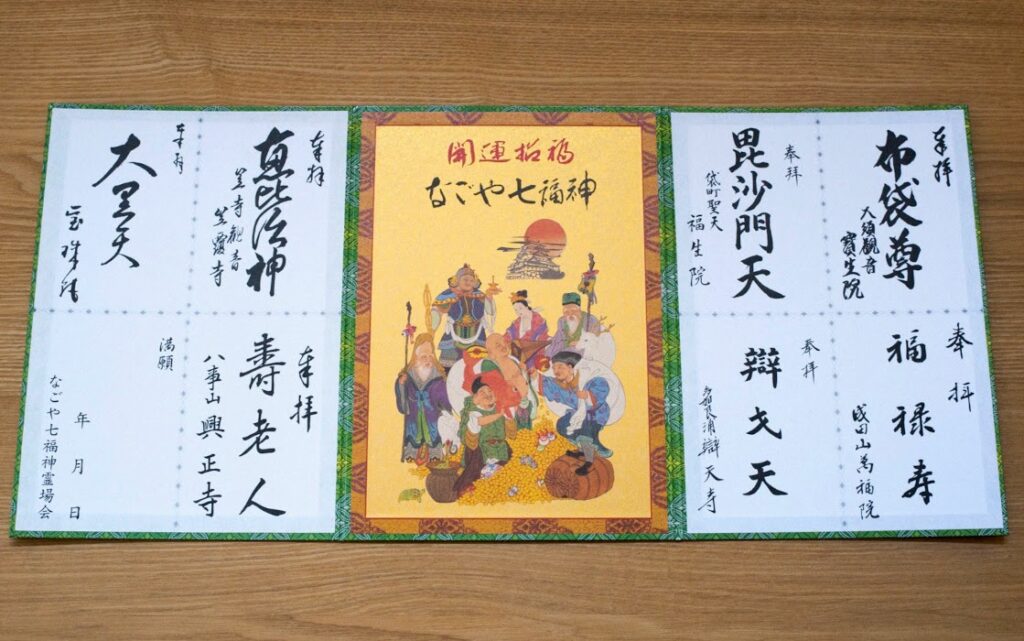 奉拝
布袋尊
大須観音
寶生院
奉拝
毘沙門天
袋町聖天
福生院
奉拝
福禄寿
成田山萬福院
奉拝
辯才天
多加良浦辯天寺
開運招福
なごや七福神
奉拝
恵比須神
笠寺観音
笠覆寺
奉拝
大黒天
宝珠院
奉拝
壽老人
八事山興正寺
満願
年月日
なごや七福神霊場会